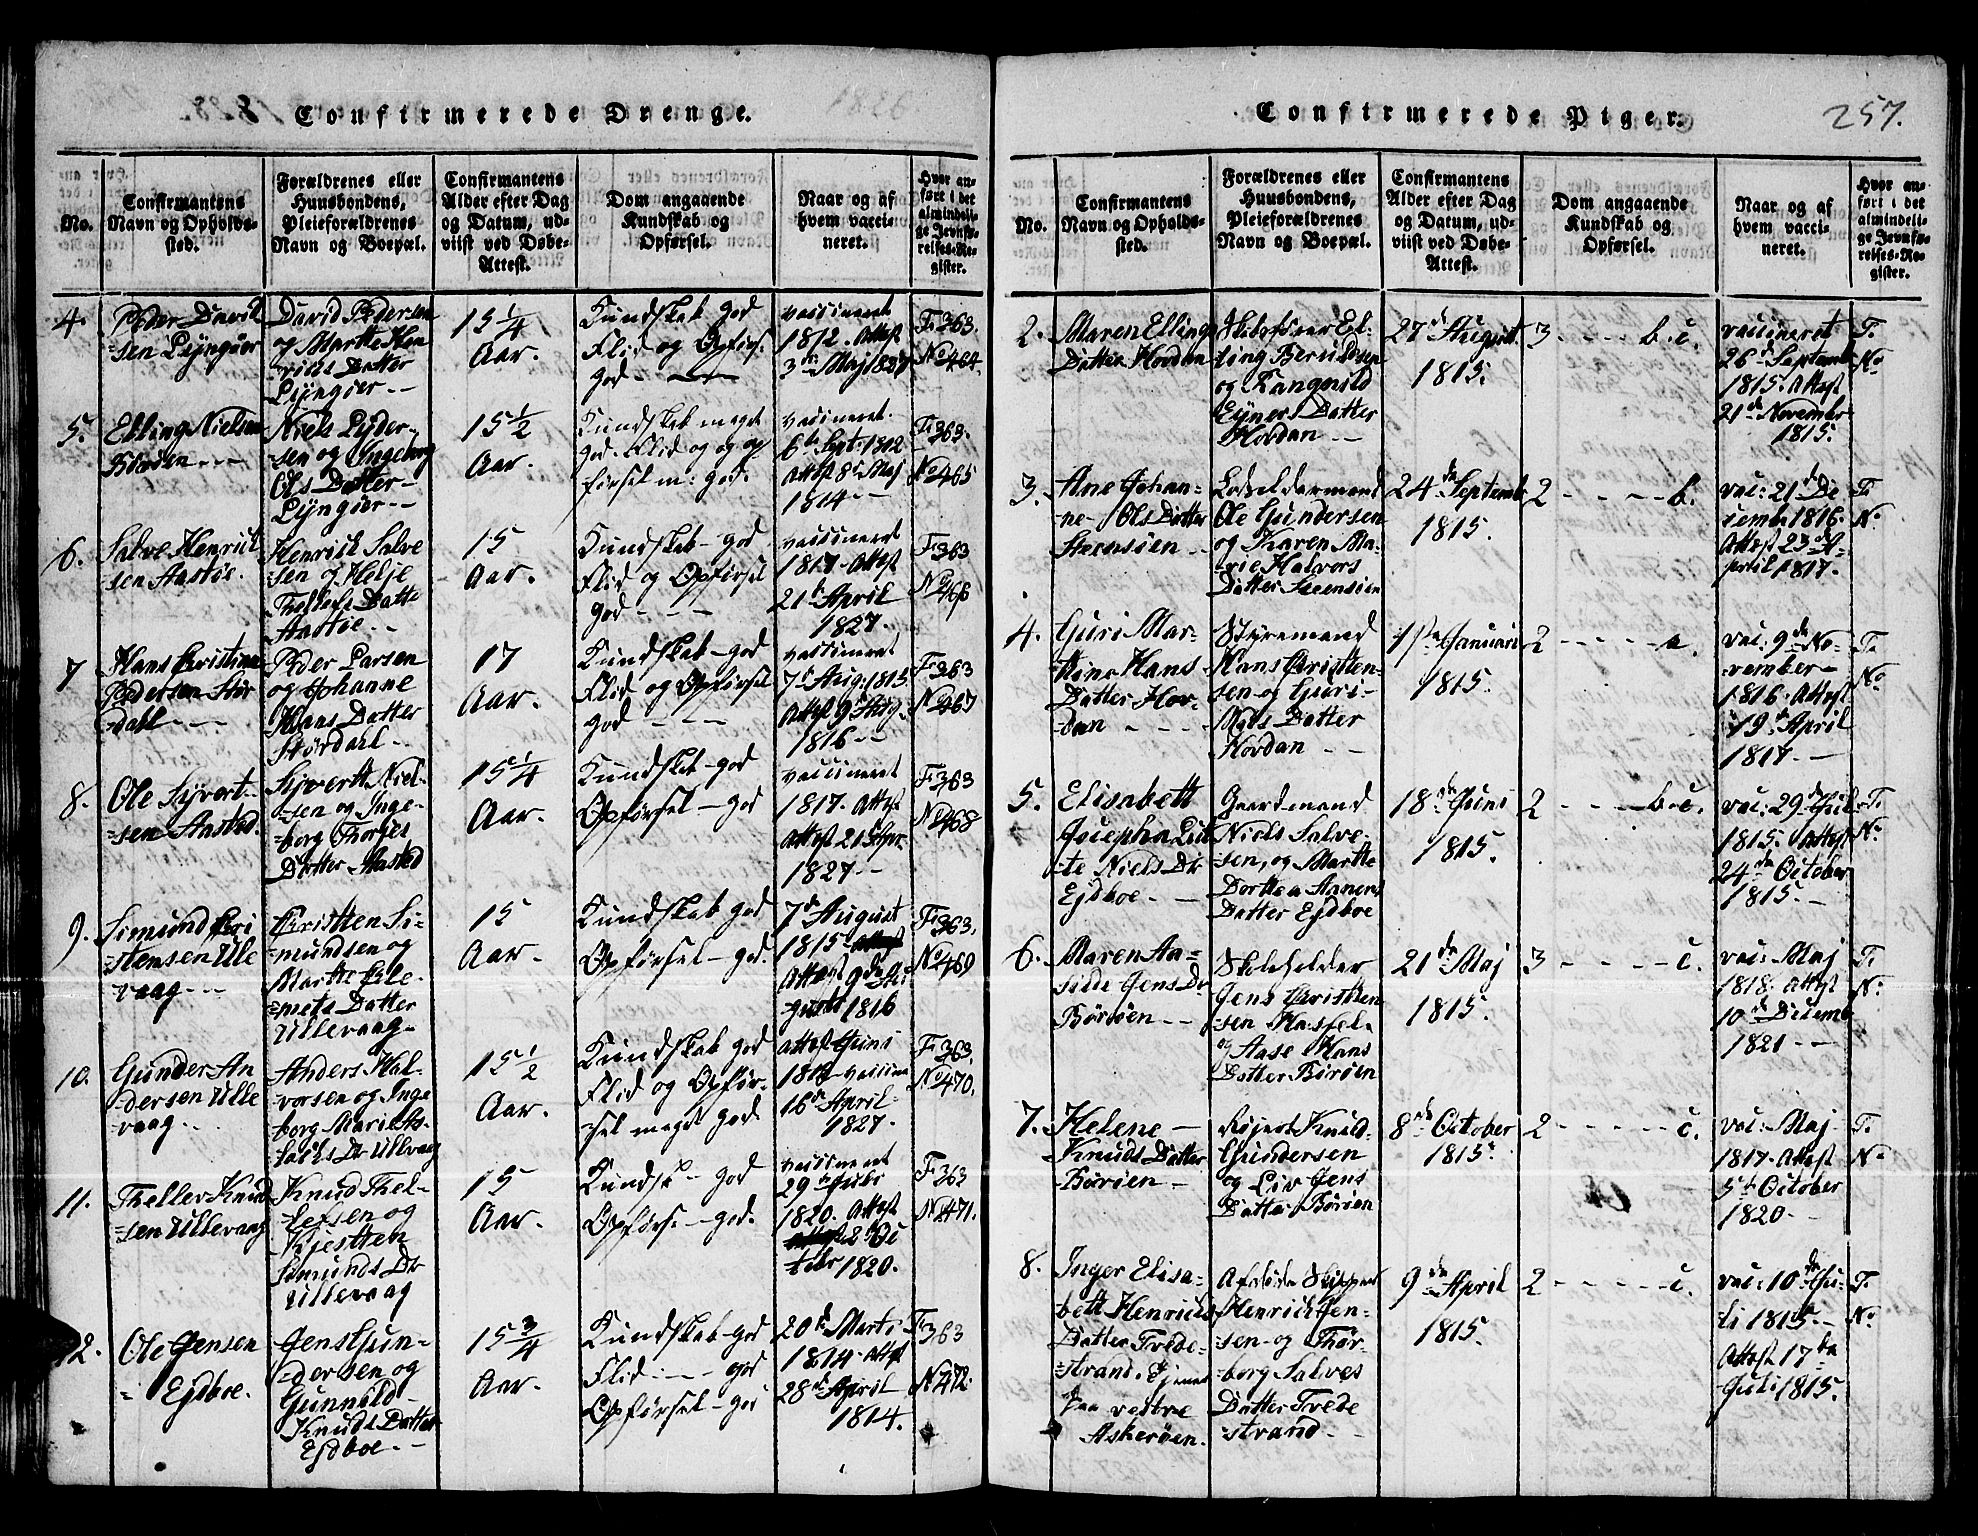 Confirmerede Drenge.
No.
Confirmantens
Navn og Opholds-
sted.
Forældrenes eller
Huusbondens,
Pleieforældrenes
Navn og Boepæl.
Confirmantens
Alder efter Dag
og Datum, ud-
viist ved Døbe-
Attest.
Dom angaaende
Kundskab og
Opførsel.
Naar og af
hvem vacci-
neret.
Hvor an-
ført i det
almindeli-
ge Jevnfø-
relses-Re-
gister.
4.
Peder David
sen Lyngøer
David Pedersen
og Marthe Hen
richs Datter
Lyngøer --
15 1/4
Aar.
Kundskab god
Flid og Opførs.
god - —
vaccineret
1812. Attest
3de Maj 1827
F: 363.
No 464.
5.
Elling Nielsen
Niels Peder-
sen og Ingeborg
Ols Datter -
Lyngøer --
15 1/2
Aar.
Kundskab meget
god. Flid og og op
førsel m: god.
vaccineret
6te Sept: 1802
Attest 8de Maj
1814 --
F: 363.
No 465
6.
Salve Henrich
sen Aastøe.
Henrich Salve
sen og Helje
Thellefs Datte
Aastøe --
15
Aar.
Kundskab - god
Flid og Opførsel
god - - -
vaccineret
1817. Attest
21de April
1827.
F: 363
No 466
7
Hans Cristian
Pedersen Stør
dahl - -
Peder Larsen
og Johanne
Hans Datter
Størdahl --
17
Aar.
Kundskab - god
Flid og Opførsel
god - - -
vaccineret
7de Aug: 1815
Attest 9de Aug.
1816 --
F: 363
No 467
8.
Ole Syvert-
sen Aasted.
Syvertt Niel-
sen og Inge-
borg Torjes
Datter Aasted
15 1/4
Aar.
Kundskab - god
Opførsel - god
vaccineret
1817. Attest
Attest 21 Apr.
1827 --
F: 363
No 468
9.
Simund Cri
stensen Ulle
vaag --
Christen Si-
mundsen og
Marthe Cle-
mets Datter
Ullevaag -
15
Aar.
Kundskab god
Opførsel - god.
7de August
1815
Attest 9de Au
gusti 1816
F: 363.
No 469
10.
Gunder An
dersen Ulle
vaag --
Anders Hal-
vorsen og Inge
borg Marie As-
lachs Dr Ullevaag
15 1/2
Aar.
Kundskab god
Flid og Opfør-
sel meget god
Attest Juni
16de April
1827.
F: 363.
No 470.
11.
Thellef Knud
sen Ullevaag
Knud Thel-
lefsen og
Kjestten
Simunds Dr
Ullevaag
15
Aar.
Kundsk - god
Opførs - god.
vaccineret
29de Julii
1820. Attest
1820.
F: 363
No 471.
12.
Ole Jensen
Ejdboe.
Jens Gun-
dersen og
Gunnild
Knuds Datter
Ejdboe. -
15 3/4
Aar.
Kundskab god
Flid - - - god
Opførsel - god
20de Marti
1814. Attest
28de April
1814.
F: 363
No 472.
Confirmerede Piger.
257.
No.
Confirmantens
Navn og Opholds-
sted.
Forældrenes eller
Huusbondens,
Pleieforældrenes
Navn og Boepæl.
Confirmantens
Alder efter Dag
og Datum, ud-
viist ved Døbe-
Attest.
Dom angaaende
Kundskab og
Opførsel.
Naar og af
hvem vacci-
neret.
Hvor an-
ført i det
almindeli-
ge Jevnfø-
relses-Re-
gister.
2.
Maren Ellings
Datter Hovdan
Skibsfører El-
ling Berulfsen
og Rangnild
Ejners Datter
Hovdan --
27de August
1815.
3 - - - b. c.
vaccineret
26de Septemb
1815. Attest
21de November
1815.
F:
No
3.
Ane Johan-
ne Ols Datter
Steensøen -
Lodsoldermand
Ole Gundersen
og Karen Ma-
rie Halvors
Datter Steensøen
24de Septemb
1815.
2 - - - b.
vac: 21de De
cemb. 1816.
Attest 23de A-
pril 1817.
F:
No
4.
Guri Mar-
thine Hans
Datter Hov-
dan - - -
Styremand
Hans Christen-
sen og Guri
Mads Datter
Hovdan - -
1ste Januari
1815.
2 - - - - a.
vac: 9de No-
vember -
1816. Attest
19de April
1817 -
F:
No
5.
Elisabett
Josepha Lut
te Niels Dr
Ejdboe -
Gaardmand
Niels Salve-
sen, og Marthe
Dorthea Aanons
Datter Ejdboe
18de Juni
1815.
2 - - - b. c.
vac: 29de Jul
1815. Attest
24de October
1815. -
F.
No
6.
Maren Aa-
sidde Jens Dr
Børøen --
Skoleholder
Jens Christen
sen Hassel.
og Aase Hans
Datter Børøen
21de Maj
1815.
3 - - - - c.
vac: Maj
1818. Attest
10de Decemb
1821 --
F.
No
7.
Helene -
Knuds Datter
Børøen -
Rejert Knud
Gundersen
og Liv Jens
Datter Børøen
8de October
1815.
2 - - - - c.
vac: Maj
1817. Attest
5te October
1820 -
F.
No
8.
Inger Elisa-
bett Henrichs
Datter Tvede
strand.
paa vestre
Askerøen.
Afdøde Skipper
Henrich Jen-
sen og Thor-
borg Salves
Datter Tvede
strand -
9de April
1815.
2 - - - - c.
vac: 10de Ju-
li 1815. -
Attest 17de
Juli 1815.
F.
No